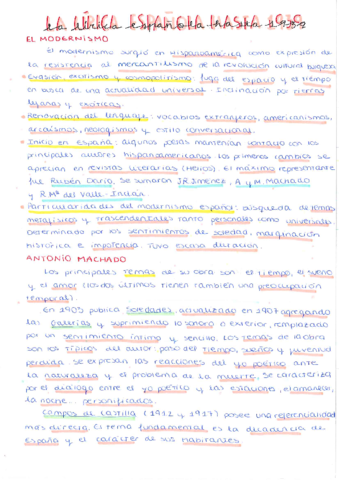 LA LÍRICA ESPAÑOLA HASTA 1939
EL MODERNISMO
El modernismo surgió en Hispanoamérica como expresión de
la resistencia al mercantilismo de la revolución cultural burguesa
Evasión, exotismo y cosmopolitismo: fuga del espacio y el tiempo
en busca de una actualidad universal. Inclinación por tierras
lejanas y exóticas.
Renovación del lenguaje: vocablos extranjeros, americanismos,
arcaísmos, neologismos y estilo conversacional.
Inicio en España: algunos poetas mantenían contacto con los
principales autores hispanoamericanos. Los primeros cambios se
aprecian en revistas literarias (Helios). El máximo representante
fue Rubén Darío, se sumaron J.R. Jiménez, A. y M. Machado
y R. Mª del Valle-Inclán.
Particularidades del modernismo español: búsqueda de temas
metafísicos y trascendentales tanto personales como universales.
Determinado por los sentimientos de soledad, marginación
histórica e impotencia. Tuvo escasa duración.
ANTONIO MACHADO
Los principales temas de su obra son el tiempo, el sueño
y el amor (los dos últimos tienen también una preocupación
temporal).
En 1903 publica Soledades, actualizado en 1907 agregando
las Galerías y suprimiendo lo sonoro o exterior, remplazado
por un sentimiento íntimo y sencillo. Los temas de la obra
son los típicos del autor: paso del tiempo, sueños y juventud
perdida. Se expresan las reacciones del yo poético ante
la naturaleza y el problema de la muerte. Se caracteriza
por el diálogo entre el yo poético y las estaciones, el amanecer,
la noche... personificados.
Campos de Castilla (1912 y 1917) posee una referencialidad
más directa. El tema fundamental es la decadencia de
España y el carácter de sus habitantes.